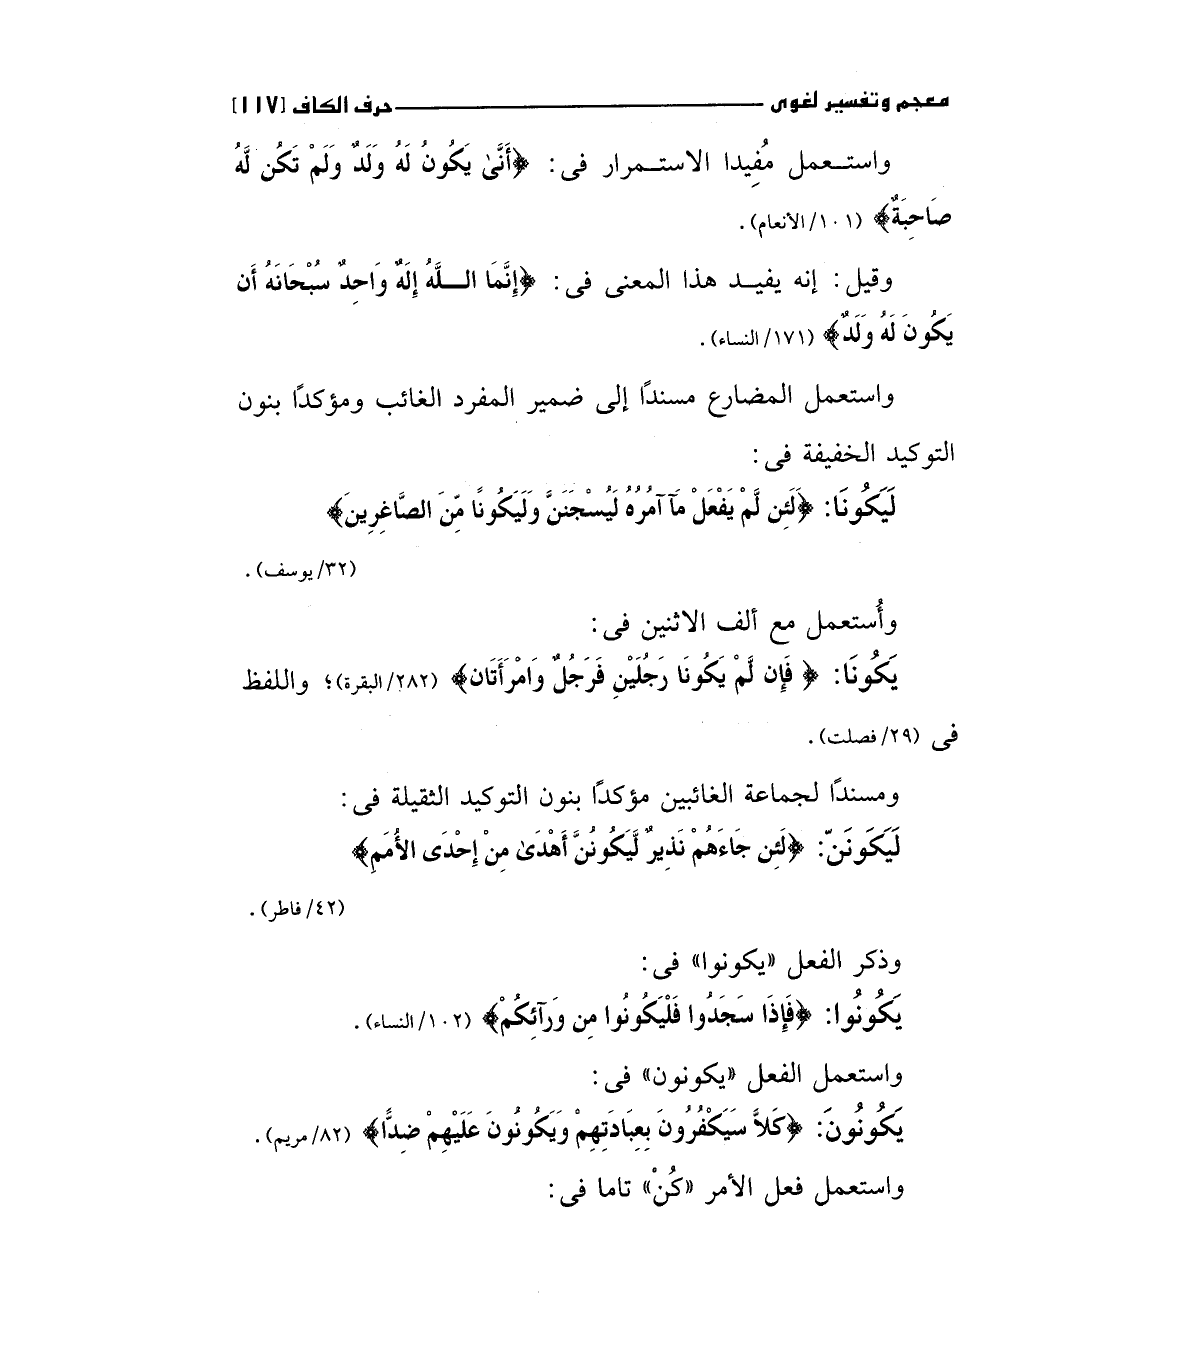 معجم وتفسير لغوى حرف الكاف [١١٧]
واستعمل مُفِيدا الاستمرار فى: ﴿أَنَّىٰ يَكُونُ لَهُ وَلَدٌ وَلَمْ تَكُن لَّهُ
صَاحِبَةٌ﴾ (١٠١/الأنعام).
وقيل: إنه يفيد هذا المعنى فى: ﴿إِنَّمَا اللَّهُ إِلَهٌ وَاحِدٌ سُبْحَانَهُ أَن
يَكُونَ لَهُ وَلَدٌ﴾ (١٧١/ النساء).
واستعمل المضارع مسندًا إلى ضمير المفرد الغائب ومؤكدًا بنون
التوكيد الخفيفة فى:
لَيَكُونَا: ﴿لَئِن لَّمْ يَفْعَلْ مَآ آمُرُهُ لَيُسْجَنَنَّ وَلَيَكُونًا مِّنَ الصَّاغِرِينَ﴾
(٣٢/ يوسف).
وأُستعمل مع ألف الاثنين فى:
يَكُونَا: ﴿ فَإِن لَّمْ يَكُونَا رَجُلَيْنِ فَرَجُلٌ وَامْرَأَتَان﴾ (٢٨٢/ البقرة)؛ واللفظ
فى (٢٩/ فصلت).
ومسندًا لجماعة الغائبين مؤكدًا بنون التوكيد الثقيلة فى:
لَيَكَونَنّ: ﴿لَئِن جَاءَهُمْ نَذِيرٌ لَّيَكُونُنَّ أَهْدَىٰ مِنْ إِحْدَى الأُمَمِ﴾
(٤٢/ فاطر).
وذكر الفعل «يكونوا» فى:
يَكُونُوا: ﴿فَإِذَا سَجَدُوا فَلْيَكُونُوا مِن وَرَآئِكُمْ﴾ (١٠٢/ النساء).
واستعمل الفعل «يكونون» فى:
يَكُونُونَ: ﴿كَلاَّ سَيَكْفُرُونَ بِعِبَادَتِهِمْ وَيَكُونُونَ عَلَيْهِمْ ضِدًّا﴾ (٨٢/ مريم).
واستعمل فعل الأمر «كُنْ» تاما فى: